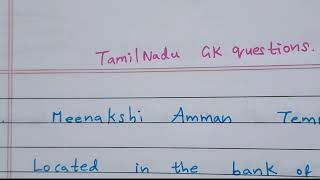 TamilNadu GK questions.
Meenakshi Amman
Located in the bank of